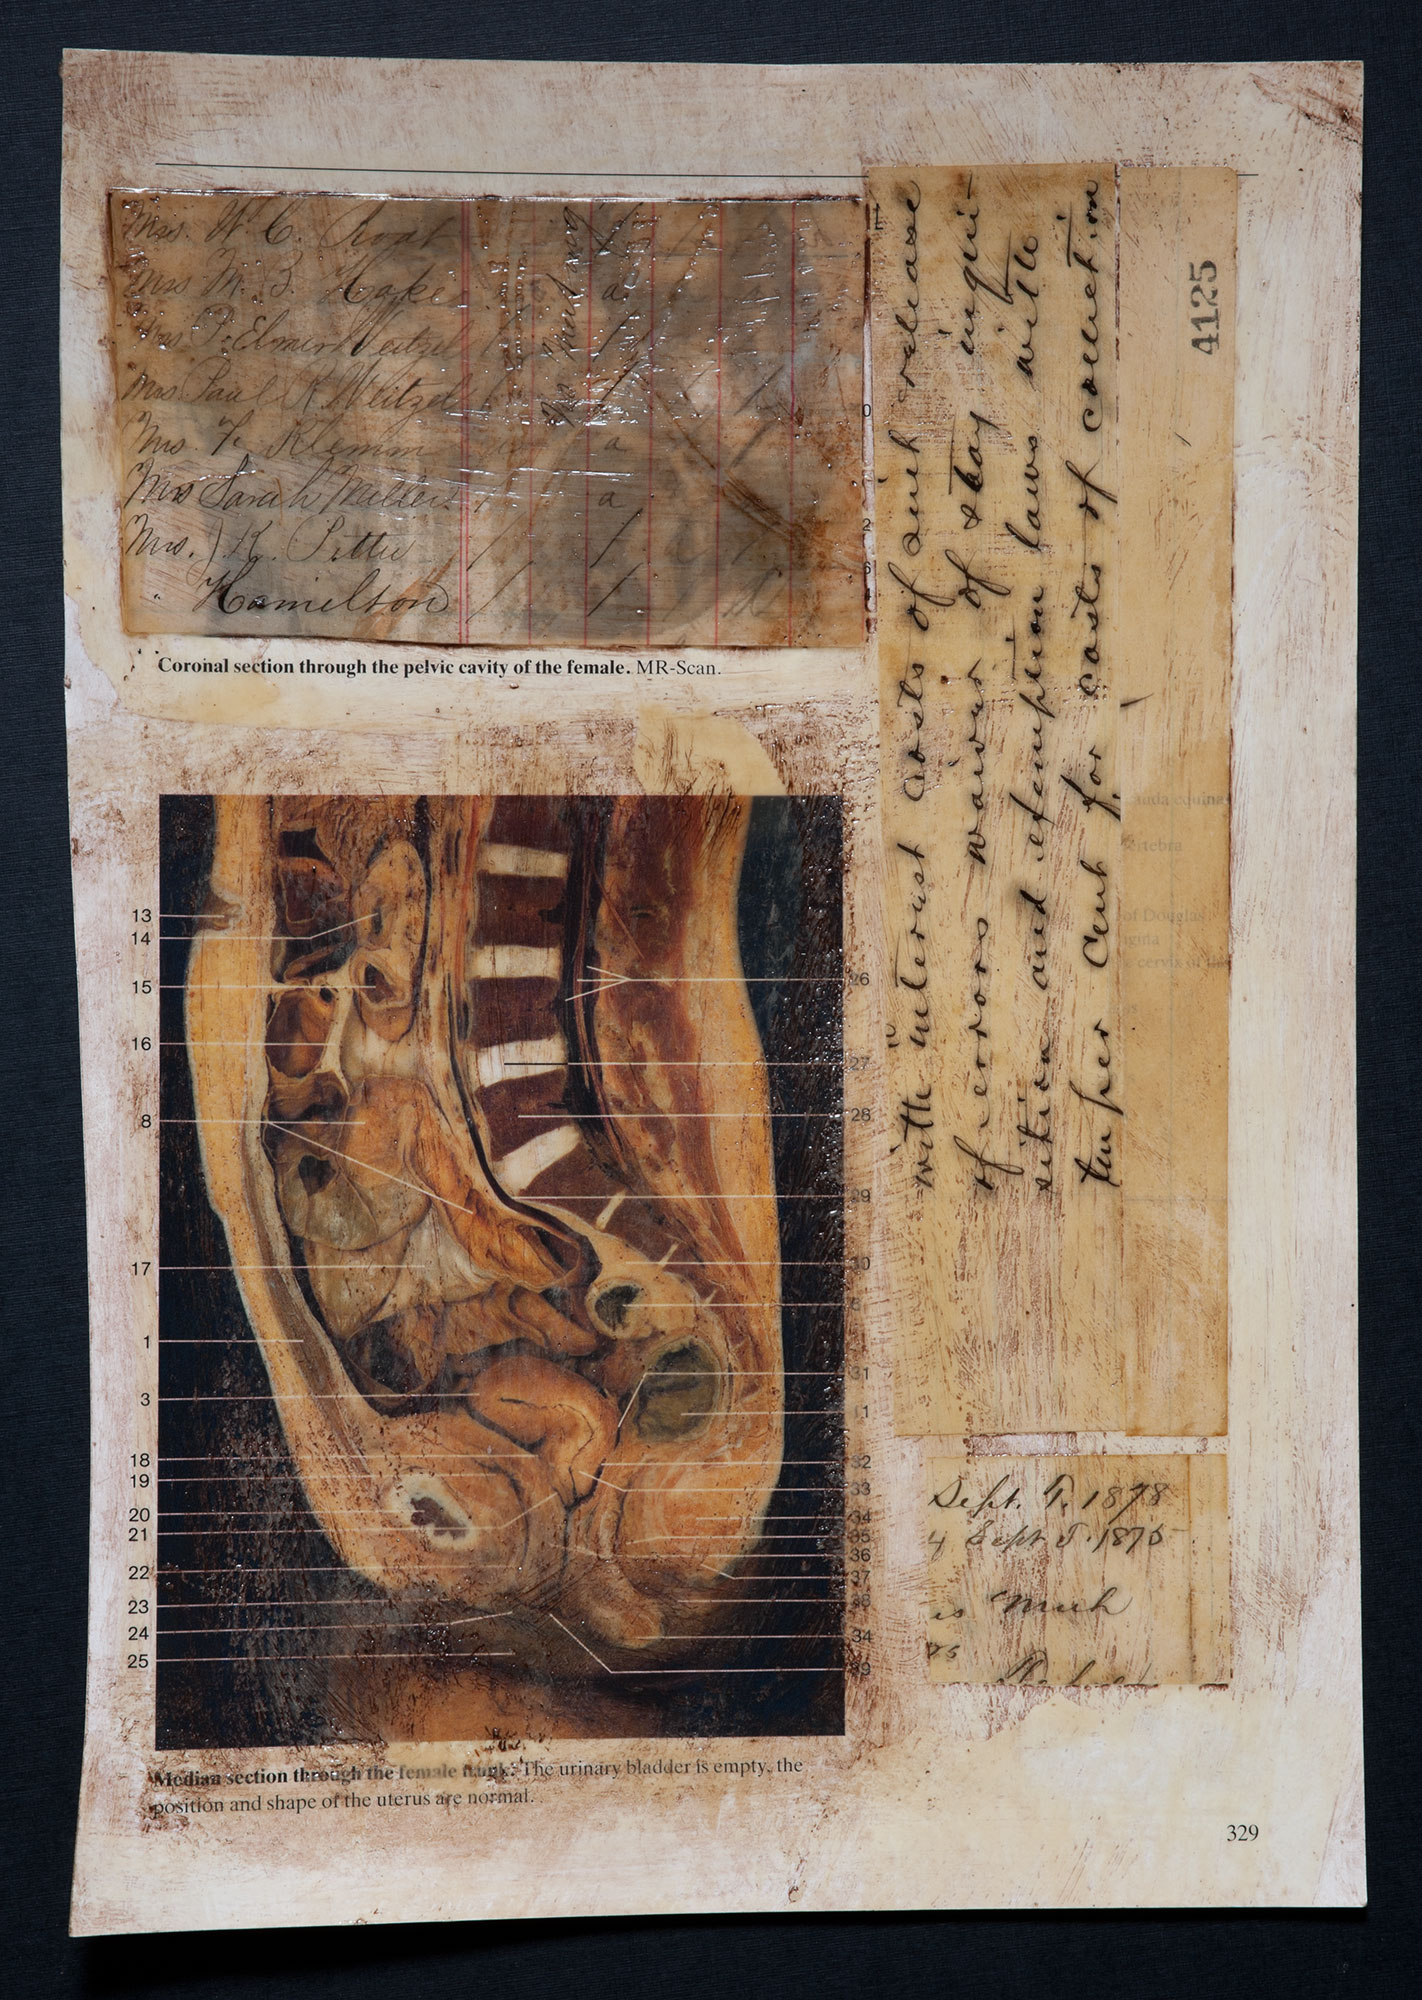 Mrs. W. C.
Mrs M. B. Hake
Mrs P. Elmer Weitzel
Mrs Paul R. Weitzel
Mrs. F. Klemm
a
Mrs Sarah Millers
a
Mrs. J. K.
Hamelson
Coronal section through the pelvic cavity of the female. MR-Scan.
with interest costs of such release
of errors waiver of stay inqui-
sition and exemption laws with
ten per cent for costs of collection
4125
cauda equina
vertebra
of Douglas
cervix of
13
14
15
16
8
17
1
3
18
19
20
21
22
23
24
25
26
27
28
29
30
8
31
11
32
33
34
35
36
37
38
34
39
Sept. 9. 1878
Sept 5. 1875
as much
as
Median section through the female trunk. The urinary bladder is empty, the
position and shape of the uterus are normal.
329